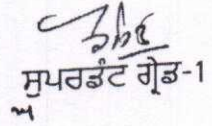 ਸੁਪਰਡੰਟ ਗ੍ਰੇਡ-1